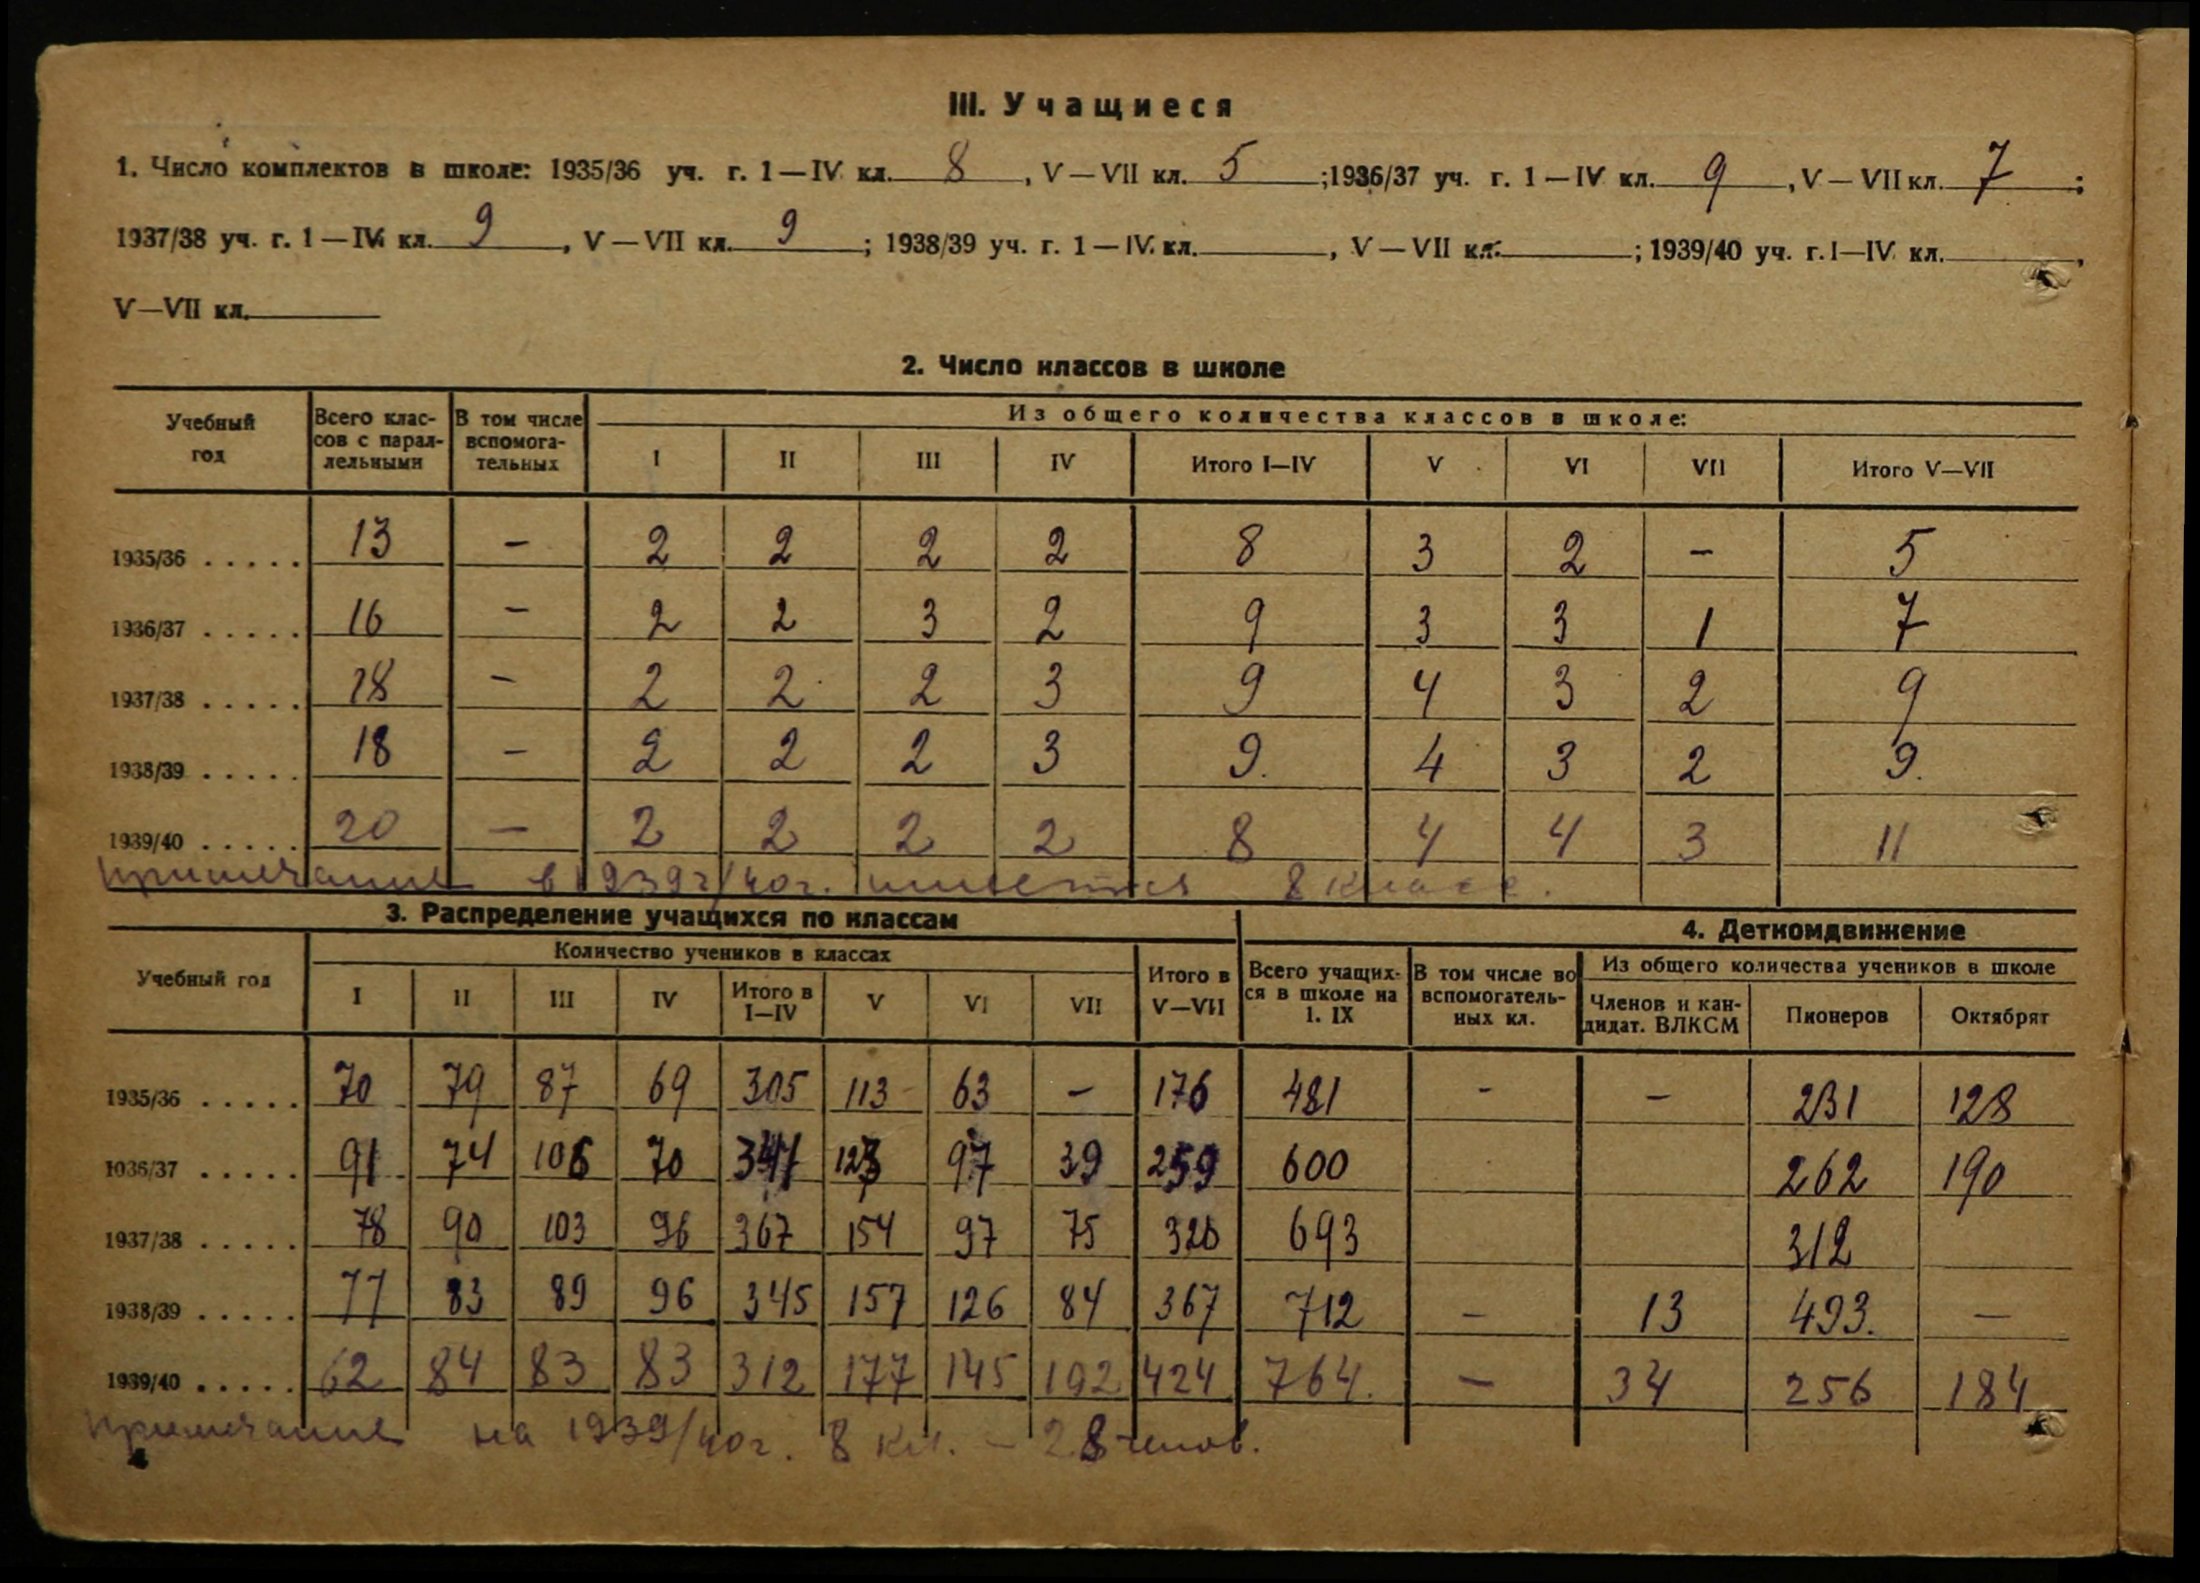 III. Учащиеся
1. Число комплектов в школе: 1935/36 уч. г. 1—IV кл. 8, V—VII кл. 5; 1936/37 уч. г. 1—IV кл. 9, V—VII кл. 7;
1937/38 уч. г. 1—IV кл. 9, V—VII кл. 9; 1938/39 уч. г. 1—IV кл. , V—VII кл. ; 1939/40 уч. г. I—IV кл. ,
V—VII кл.
2. Число классов в школе
Учебный год | Всего классов с параллельными | В том числе вспомогательных | Из общего количества классов в школе:
I | II | III | IV | Итого I—IV | V | VI | VII | Итого V—VII
1935/36 ..... 13 — 2 2 2 2 8 3 2 — 5
1936/37 ..... 16 — 2 2 3 2 9 3 3 1 7
1937/38 ..... 18 — 2 2 2 3 9 4 3 2 9
1938/39 ..... 18 — 2 2 2 3 9. 4 3 2 9.
1939/40 ..... 20 — 2 2 2 2 8 4 4 3 11
Примечание в 1939г/40г. имеется 8 класс.
3. Распределение учащихся по классам | 4. Деткомдвижение
Учебный год | Количество учеников в классах | Итого в V—VII | Всего учащихся в школе на 1. IX | В том числе во вспомогательных кл. | Из общего количества учеников в школе
I | II | III | IV | Итого в I—IV | V | VI | VII | Членов и кандидат. ВЛКСМ | Пионеров | Октябрят
1935/36 ..... 70 79 87 69 305 113 63 — 176 481 - — 231 128
1036/37 ..... 91 74 106 70 341 123 97 39 259 600 262 190
1937/38 ..... 78 90 103 96 367 154 97 75 326 693 312
1938/39 ..... 77 83 89 96 345 157 126 84 367 712 — 13 493. —
1939/40 ..... 62 84 83 83 312 177 145 102 424 764. — 34 256 184
Примечание на 1939/40г. 8 кл. — 28 челов.
4